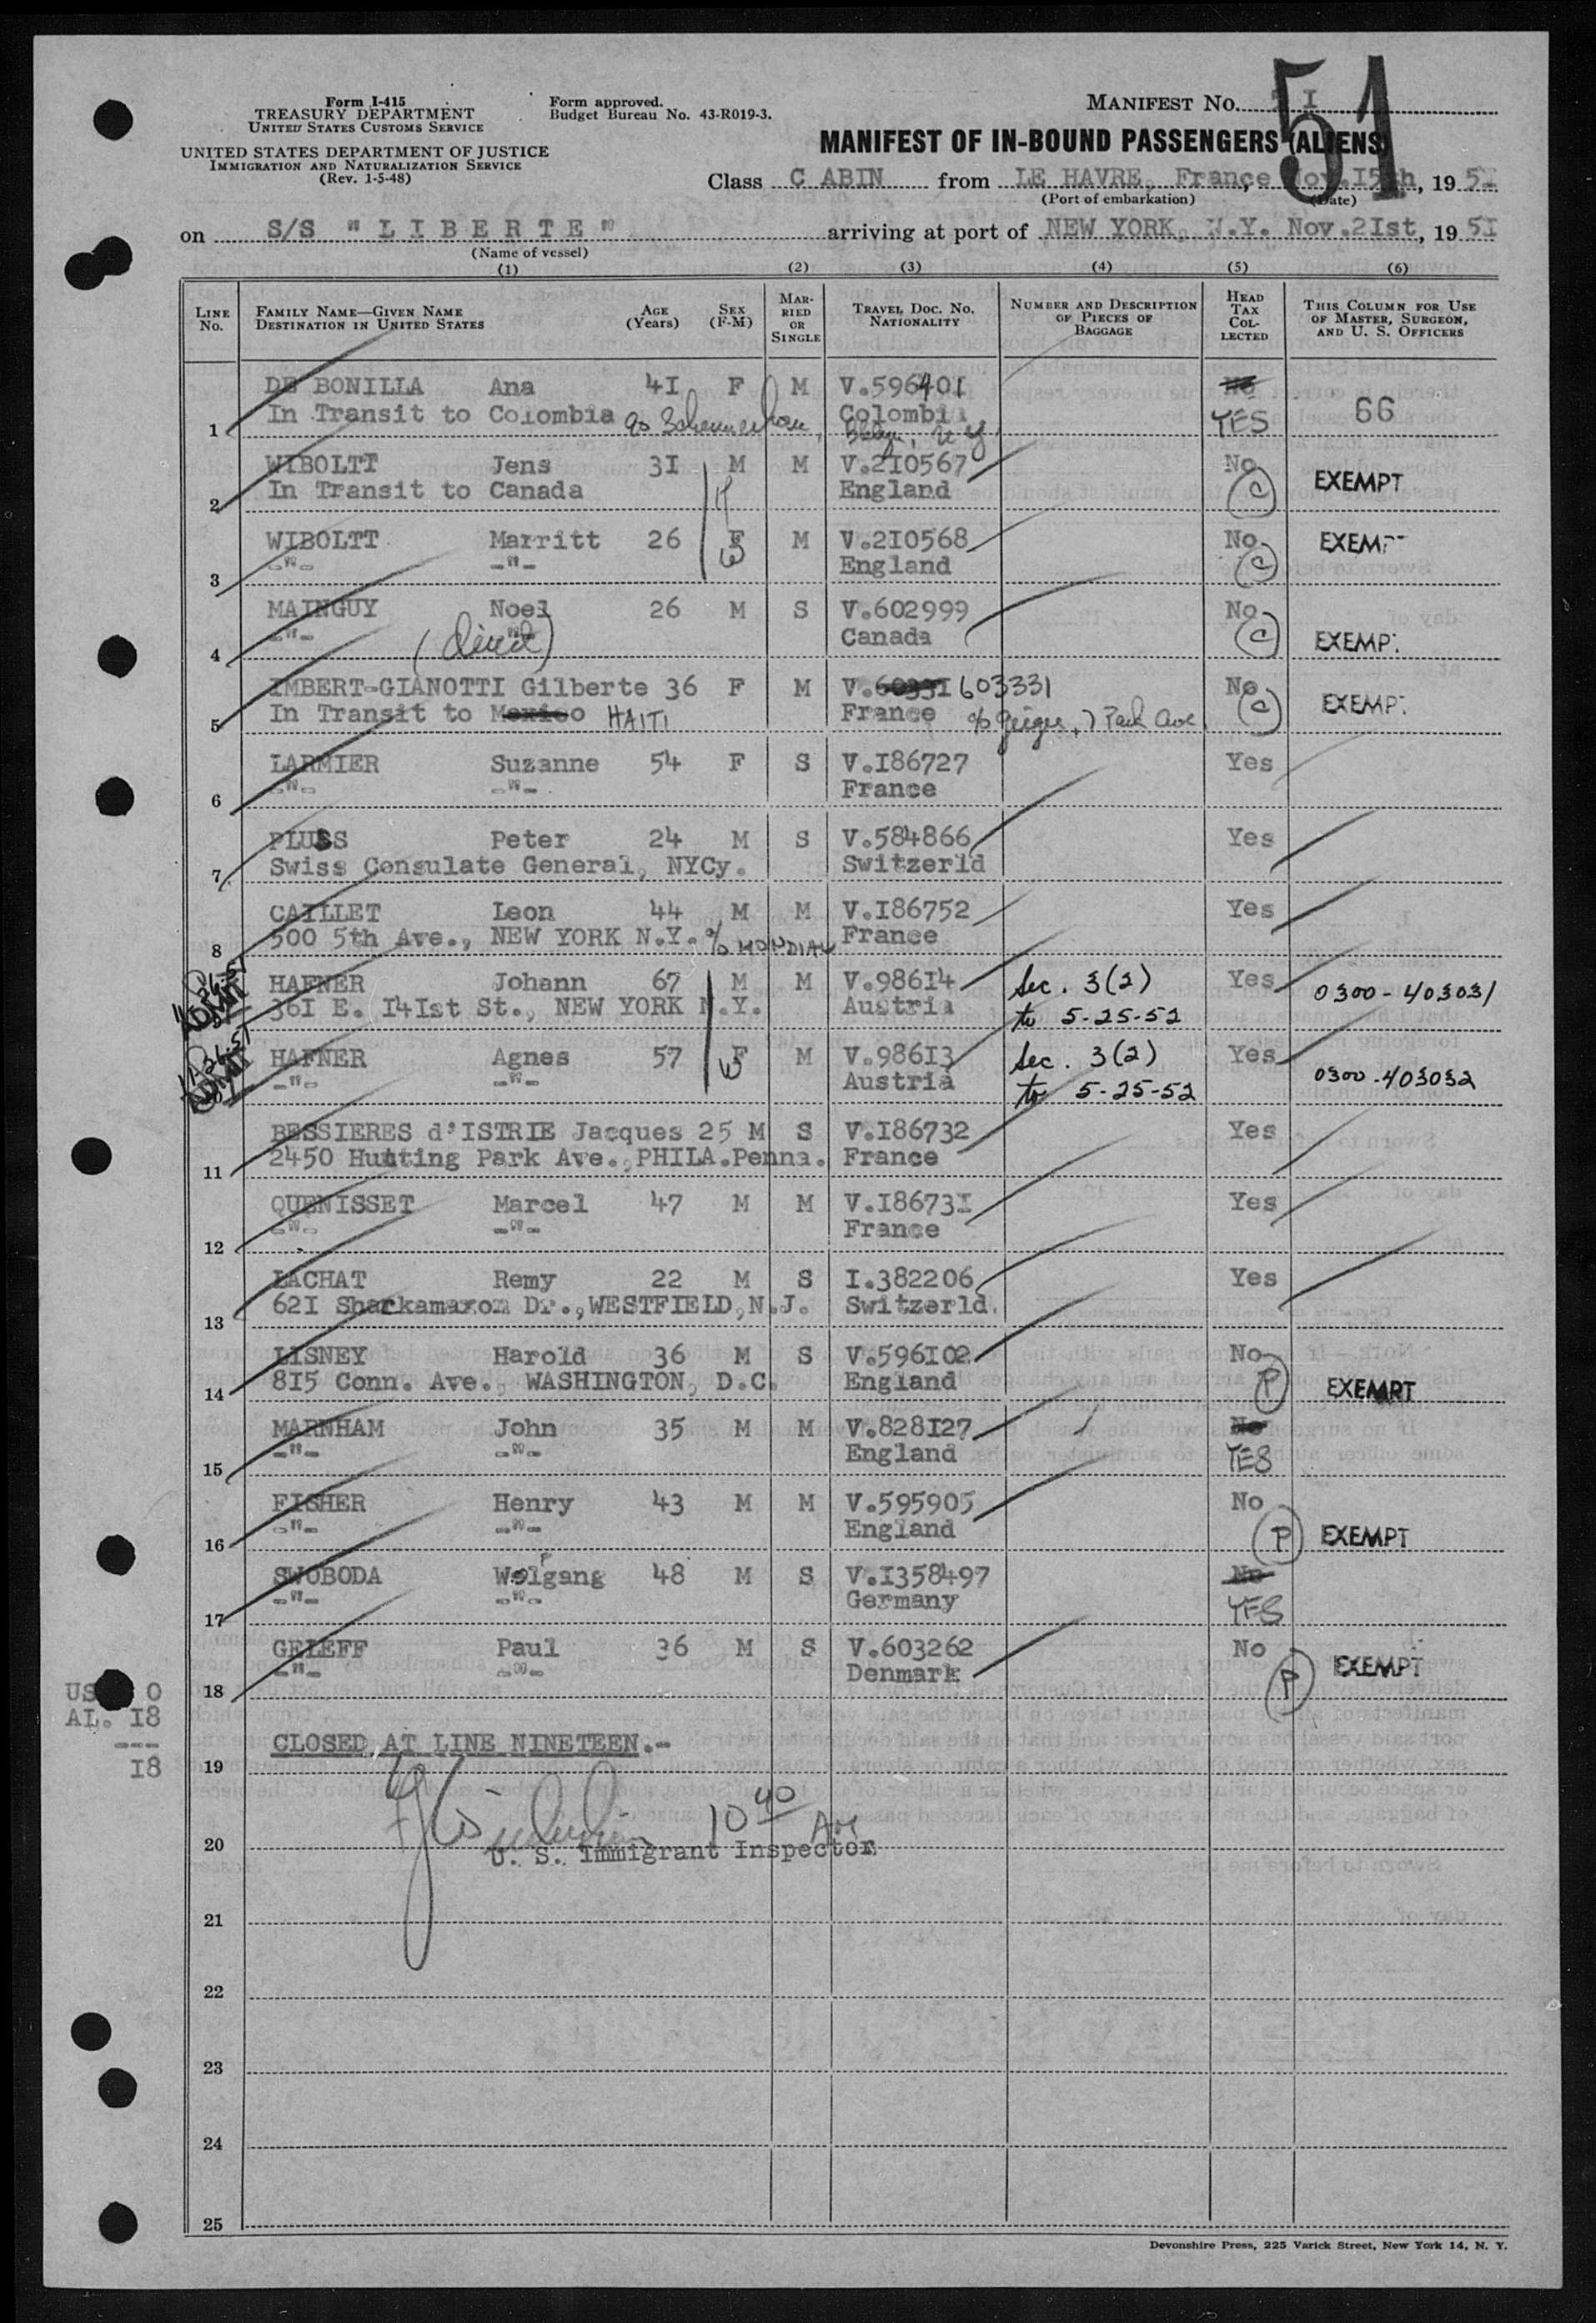 51
Form I-415
TREASURY DEPARTMENT
UNITED STATES CUSTOMS SERVICE
UNITED STATES DEPARTMENT OF JUSTICE
IMMIGRATION AND NATURALIZATION SERVICE
(Rev. 1-5-48)
Form approved.
Budget Bureau No. 43-R019-3.
MANIFEST NO.
MANIFEST OF IN-BOUND PASSENGERS (ALIENS)
Class C ABIN from LE HAVRE, France, Nov.I5th, 19 5I
(Port of embarkation) (Date)
on S/S "LIBERTE" arriving at port of NEW YORK, N.Y. Nov.2Ist, 19 5I
(Name of vessel)
(1) (2) (3) (4) (5) (6)
LINE NO. FAMILY NAME—GIVEN NAME DESTINATION IN UNITED STATES AGE (Years) SEX (F-M) MARRIED OR SINGLE TRAVEL DOC. NO. NATIONALITY NUMBER AND DESCRIPTION OF PIECES OF BAGGAGE HEAD TAX COLLECTED THIS COLUMN FOR USE OF MASTER, SURGEON, AND U. S. OFFICERS
DE BONILLA Ana 4I F M V.596401 No
1 In Transit to Colombia Colombia YES 66
WIBOLTT Jens 3I M M V.2I0567 No
2 In Transit to Canada England C EXEMPT
WIBOLTT Marritt 26 F M V.2I0568 No EXEMPT
3 -"- -"- England C
MAINGUY Noel 26 M S V.602999 No
4 -"- -"- Canada C EXEMPT
IMBERT-GIANOTTI Gilberte 36 F M V.6033I 603331 No
5 In Transit to Mexico HAITI France c/o Geiger, 7 Park Ave C EXEMPT
LARMIER Suzanne 54 F S V.I86727 Yes
6 -"- -"- France
PLUSS Peter 24 M S V.584866 Yes
7 Swiss Consulate General, NYCy. Switzerld
CAILLET Leon 44 M M V.I86752 Yes
8 500 5th Ave., NEW YORK N.Y. c/o MONDIAL France
HAFNER Johann 67 M M V.986I4 Sec. 3(2) Yes 0300-403031
ADMIT 36I E. I4Ist St., NEW YORK N.Y. Austria to 5-25-52
HAFNER Agnes 57 F M V.986I3 Sec. 3(2) Yes 0300-403032
ADMIT -"- -"- Austria to 5-25-52
BESSIERES d'ISTRIE Jacques 25 M S V.I86732 Yes
11 2450 Hunting Park Ave., PHILA.Penna. France
QUENISSET Marcel 47 M M V.I8673I Yes
12 -"- -"- France
LACHAT Remy 22 M S I.382206 Yes
13 62I Shackamaxon Dr.,WESTFIELD,N.J. Switzerld.
LISNEY Harold 36 M S V.596I02 No
14 8I5 Conn. Ave., WASHINGTON, D.C. England P EXEMPT
MARNHAM John 35 M M V.828I27 No
15 -"- -"- England YES
FISHER Henry 43 M M V.595905 No
16 -"- -"- England P EXEMPT
SWOBODA Wolfgang 48 M S V.I358497 No
17 -"- -"- Germany YES
GELEFF Paul 36 M S V.603262 No
18 -"- -"- Denmark P EXEMPT
US. 0
AL. I8
---
I8
19 CLOSED AT LINE NINETEEN.-
10 40 AM
20 U. S. Immigrant Inspector
21
22
23
24
25
Devonshire Press, 225 Varick Street, New York 14, N. Y.